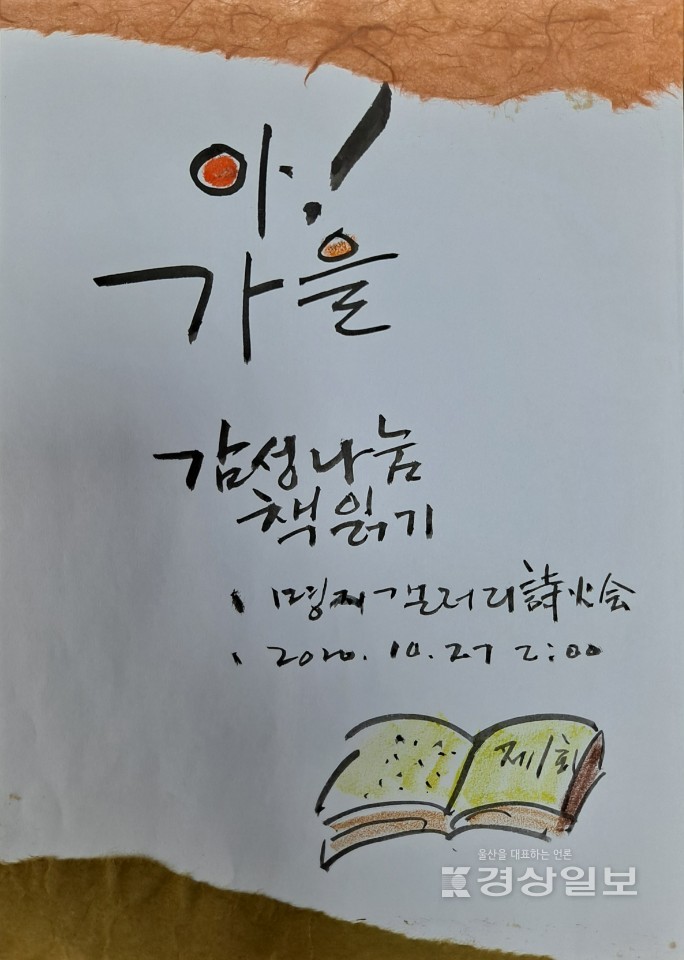 아!
가을
감성나눔
책읽기
명지갤러리 詩火会
2020. 10. 27 2:00
제1회
울산을 대표하는 언론
경상일보